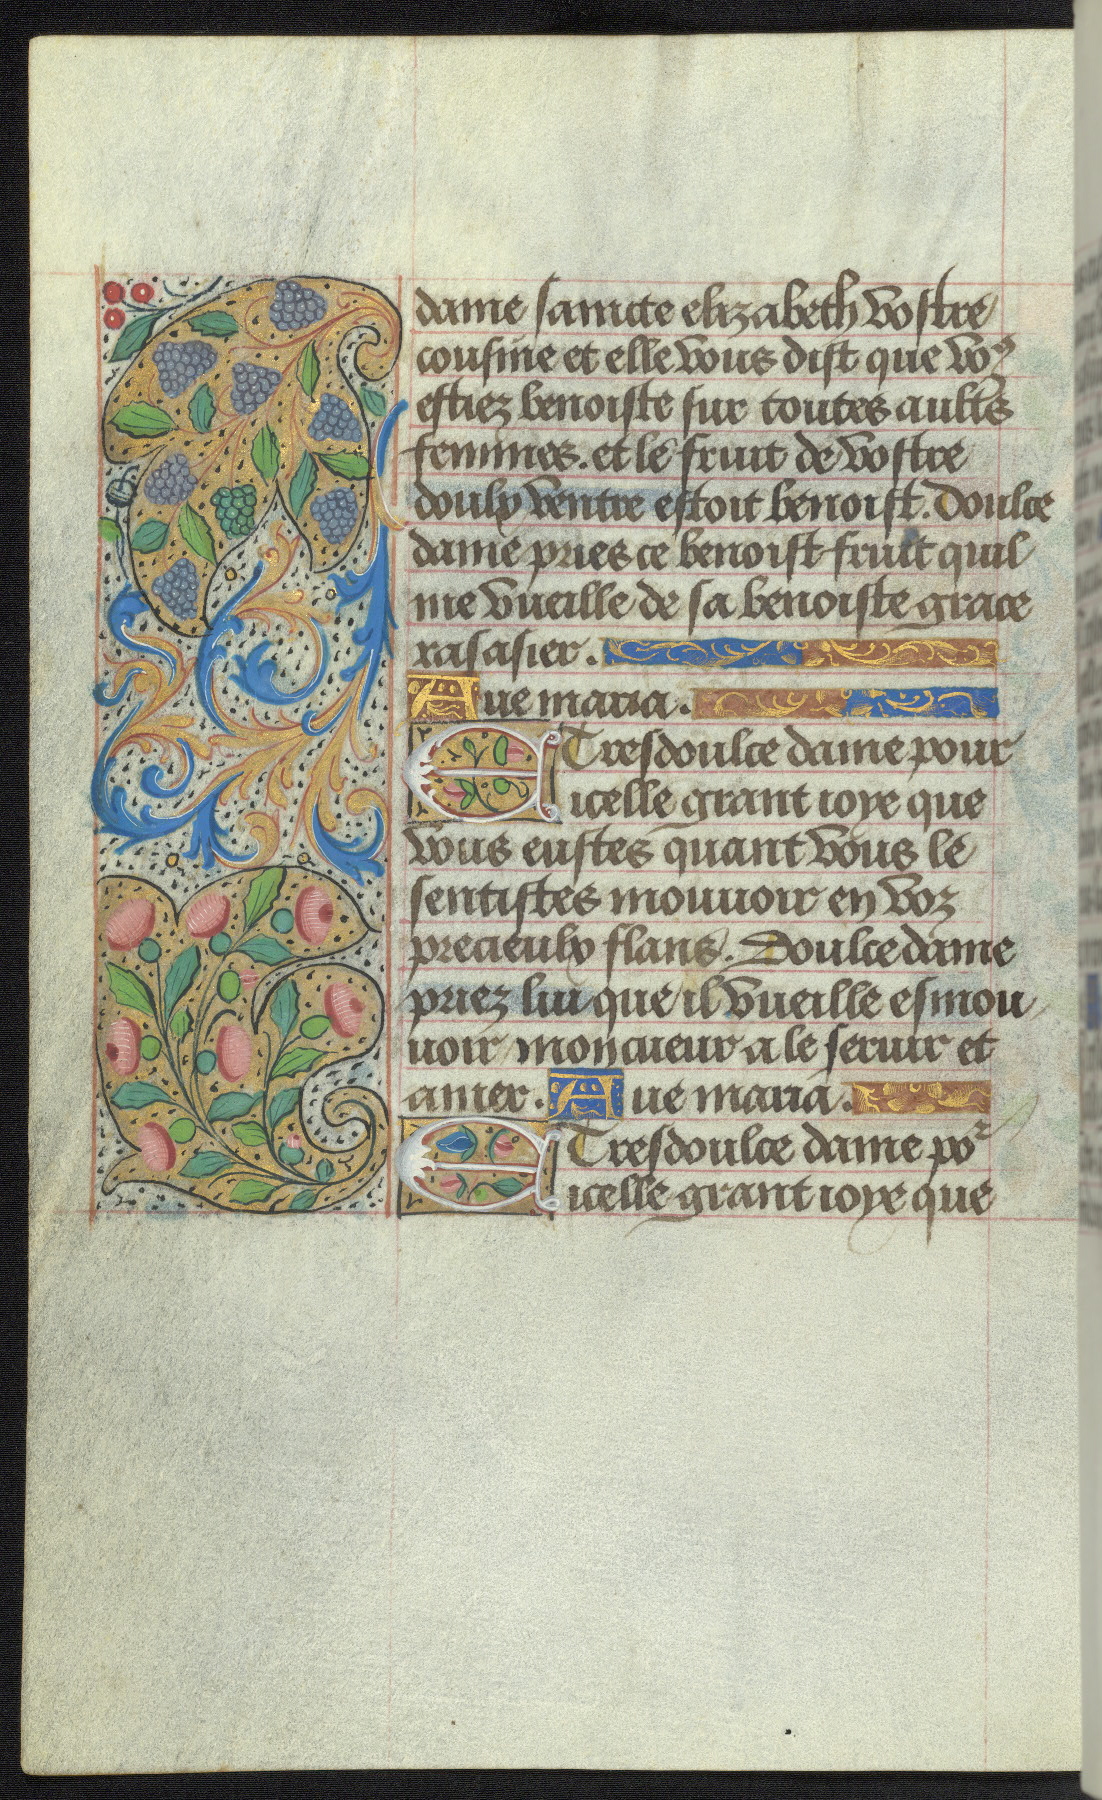 dame saincte elizabeth vostre
cousine et elle vous dist que vo⁹
estiez benoiste sur toutes aultēs
femmes. et le fruit de vostre
doulx ventre estoit benoist. Doulce
dame pries ce benoist fruit quil
me vueille de sa benoiste grace
rasasier.
Aue maria.
E Tresdoulce dame pour
icelle grant ioye que
vous eustes quant vous le
sentistes mouuoir en voz
precieulx flans. Doulce dame
priez lui que il vueille esmou
uoir mon cueur a le seruir et
amer. Aue maria.
E Tresdoulce dame poᷣ
icelle grant ioye que